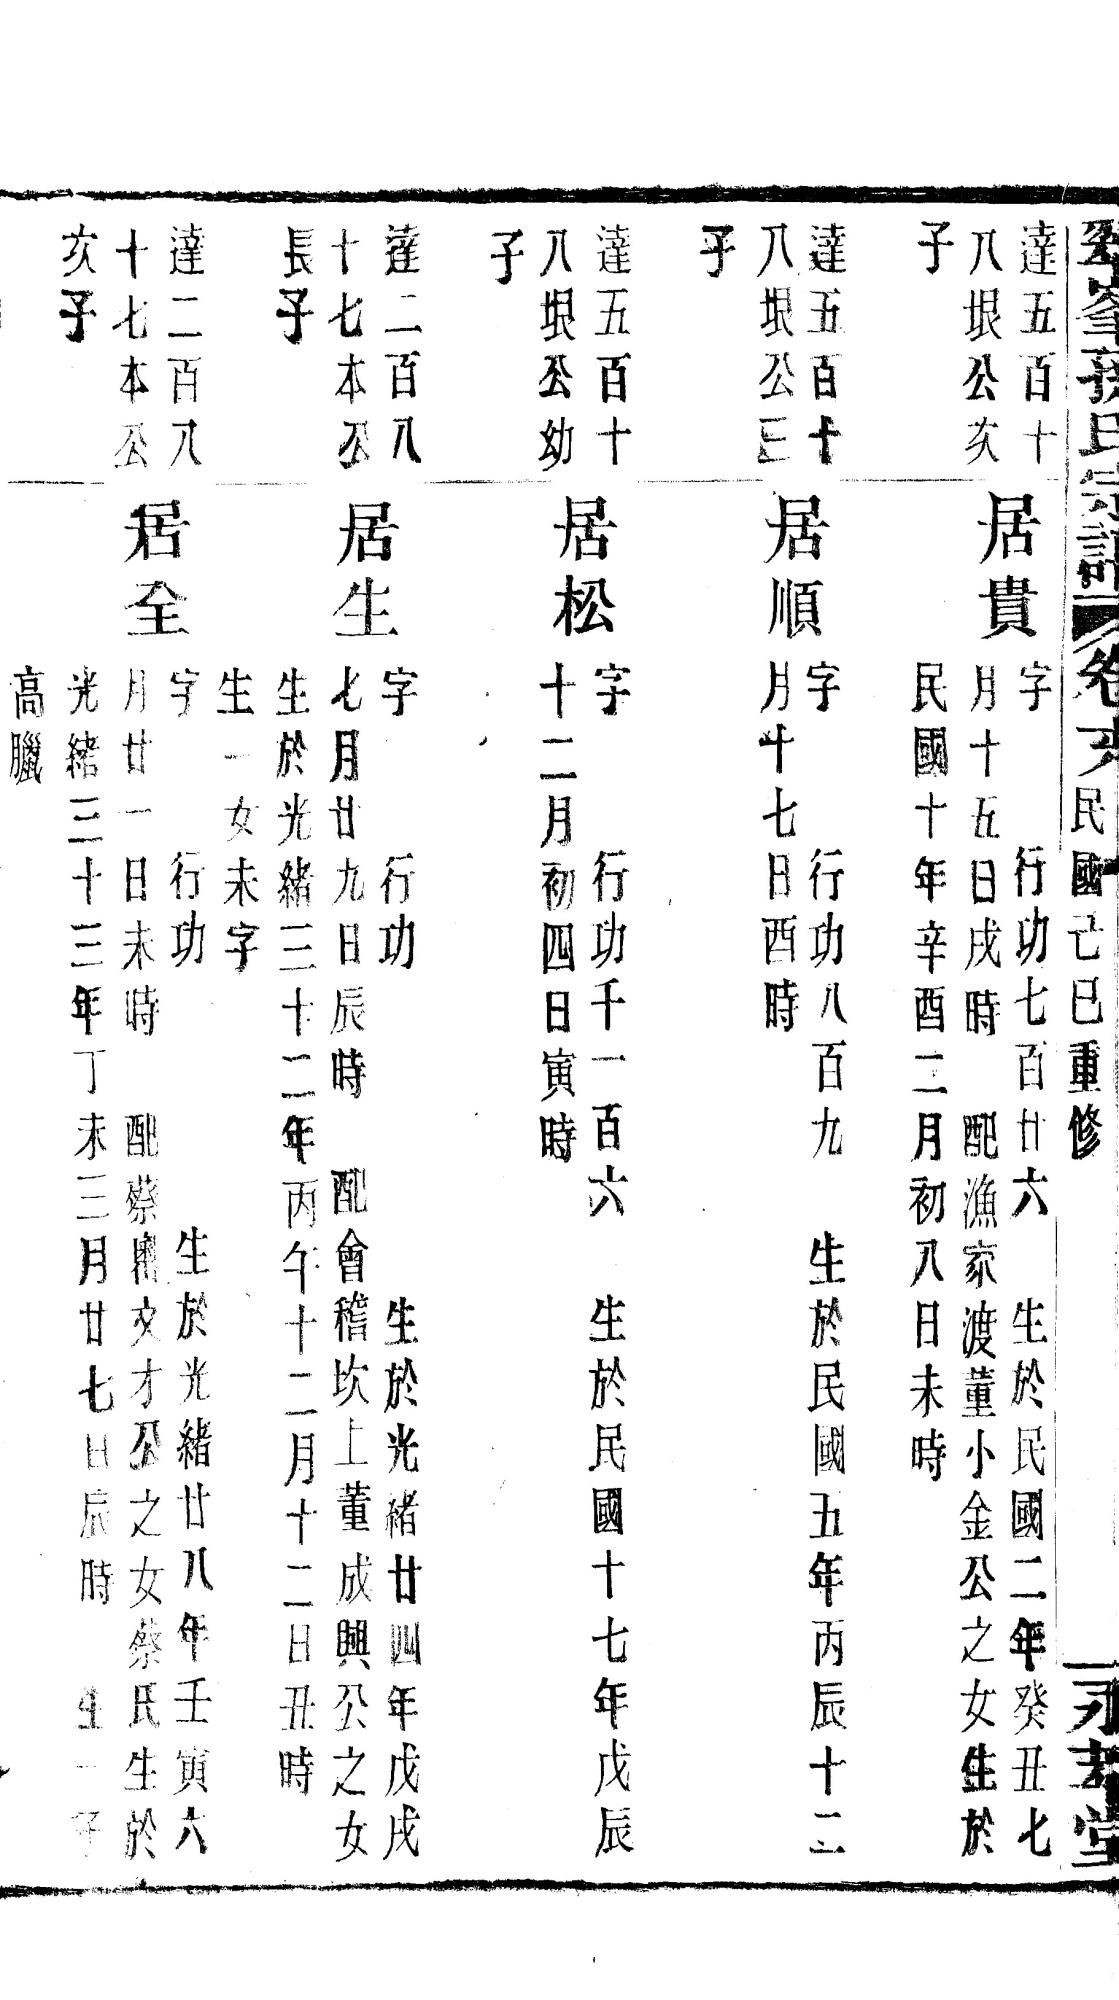 峯孫氏宗譜 卷 民國己巳重修 永 堂
達五百十
八垠公次
子
居貴
字 行功七百廿六 生於民國二年癸丑七
月十五日戌時 配漁家渡董小金公之女生於
民國十年辛酉二月初八日未時
達五百十
八垠公三
子
居順
字 行功八百九 生於民國五年丙辰十二
月十七日酉時
達五百十
八垠公幼
子
居松
字 行功千一百六 生於民國十七年戊辰
十二月初四日寅時
達二百八
十七本公
長子
居生
字 行功 生於光緒廿四年戊戌
七月廿九日辰時 配會稽坎上董成興公之女
生於光緒三十二年丙午十二月十二日丑時
生一女未字
達二百八
十七本公
次子
居全
字 行功 生於光緒廿八年壬寅六
月廿一日未時 配蔡文才公之女蔡氏生於
光緒三十三年丁未三月廿七日辰時 生一子
高臘